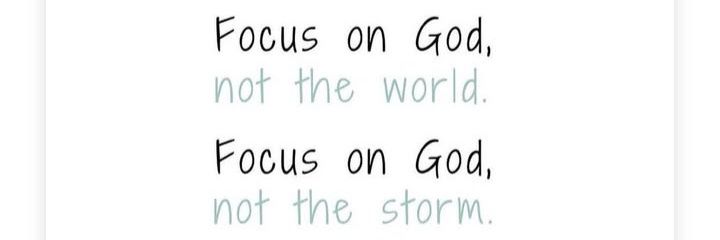 Focus on God,
not the world.
Focus on God,
not the storm.